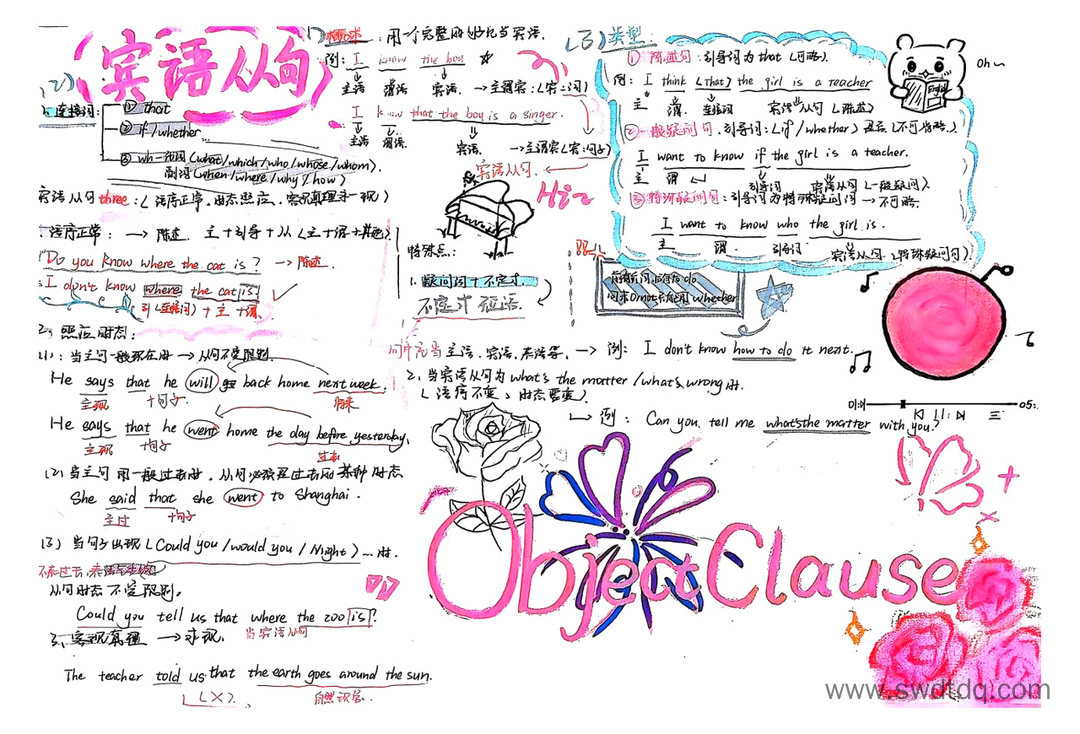 宾语从句
1) 概述：用一个完整的句子充当宾语。
例：I know the boy
主语 谓语 宾语. → 主谓宾：(宾：词)
I know that the boy is a singer.
主语 谓语. 宾语. → 主谓宾(宾：句子)
宾语从句.
Hi~
2)
1. 连接词：
① that
② if/whether
③ wh-
(what/which/who/whose/whom).
副词(when/where/why/how)
宾语从句three：(语序正常、时态
语序正常：→ 陈述. 主+引导+从(主+谓+其他)
Do you know where the cat is? → 陈述.
I don't know where the cat is!
引(连接词)+主+谓.
2. 时态：
(1)：当主句一般现在时 → 从句不受限制.
He says that he will go back home next week.
主现 +句子 将来
He says that he went home the day before yesterday.
主现 +句子 过去
(2) 当主句用一般过去时，从句必须是过去的某种时态
She said that she went to Shanghai.
主过 +句子
(3) 当句子出现(Could you/would you/Night)...时.
从句时态不受限制。
Could you tell us that where the zoo is?
当宾语从句
3. 真理 →
The teacher told us that the earth goes around the sun.
(X)
自然
(3) 类型：
① 陈述句：引导词为that(可略).
例：I think (that) the girl is a teacher
主 谓. 连接词 宾语从句(陈述)
② 一般疑问句.引导词：(if/whether)是否(不可省略).
I want to know if the girl is a teacher.
主 谓 引导词 宾语从句(一般疑问).
③ 特殊疑问句：引导词为特殊疑问词 → 不可略.
I want to know who the girl is.
主 谓. 引导词 宾语从句(特殊疑问句).
Oh~
English
特殊点：
1. 疑问词+不定式.
不定式短语.
to do
or not whether
句中充当主语、宾语、表语等. → 例：I don't know how to do it next.
2. 当宾语从句为what's the matter/what's wrong时.
(语序不变、时态要变)
例：Can you tell me what's the matter with you?
Object Clause
www.swdtdq.com